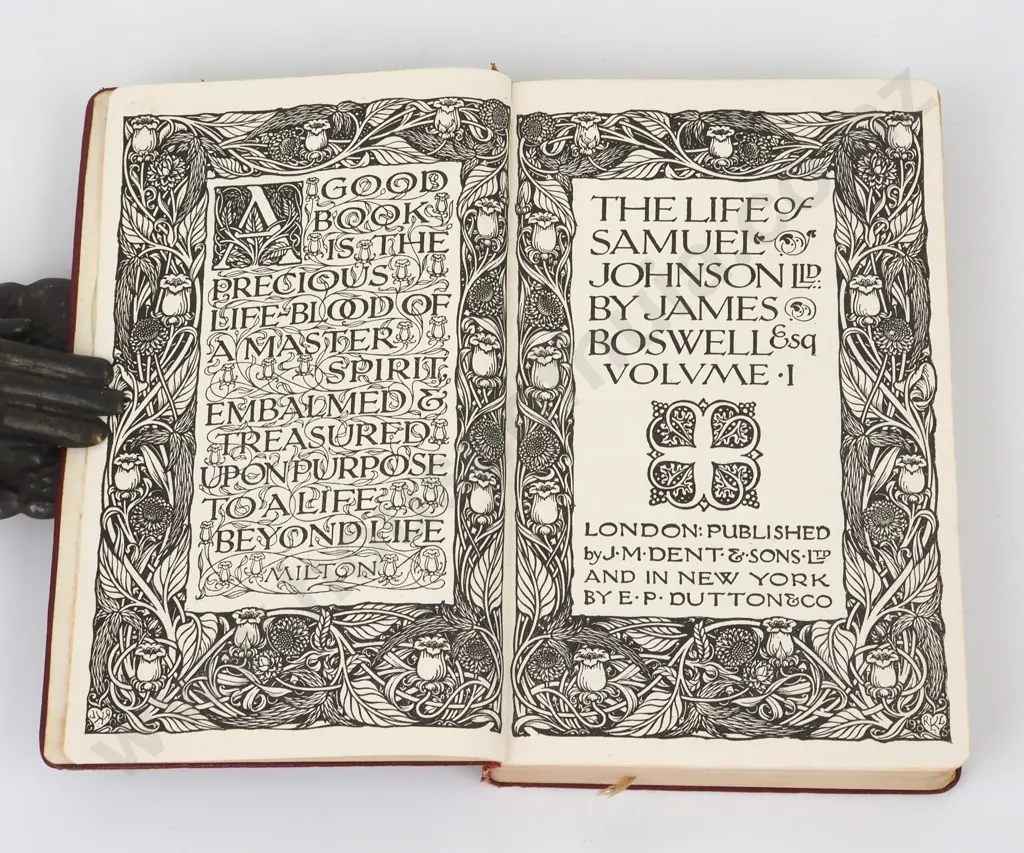 A GOOD
BOOK
IS THE
PRECIOUS
LIFE-BLOOD OF
A MASTER
SPIRIT,
EMBALMED &
TREASURED
UPON PURPOSE
TO A LIFE
BEYOND LIFE
MILTON
THE LIFE of
SAMUEL
JOHNSON LLD.
BY JAMES
BOSWELL Esq
VOLVME · I
LONDON: PUBLISHED
by J·M·DENT·&·SONS·LTD
AND IN NEW YORK
BY E·P·DUTTON & CO